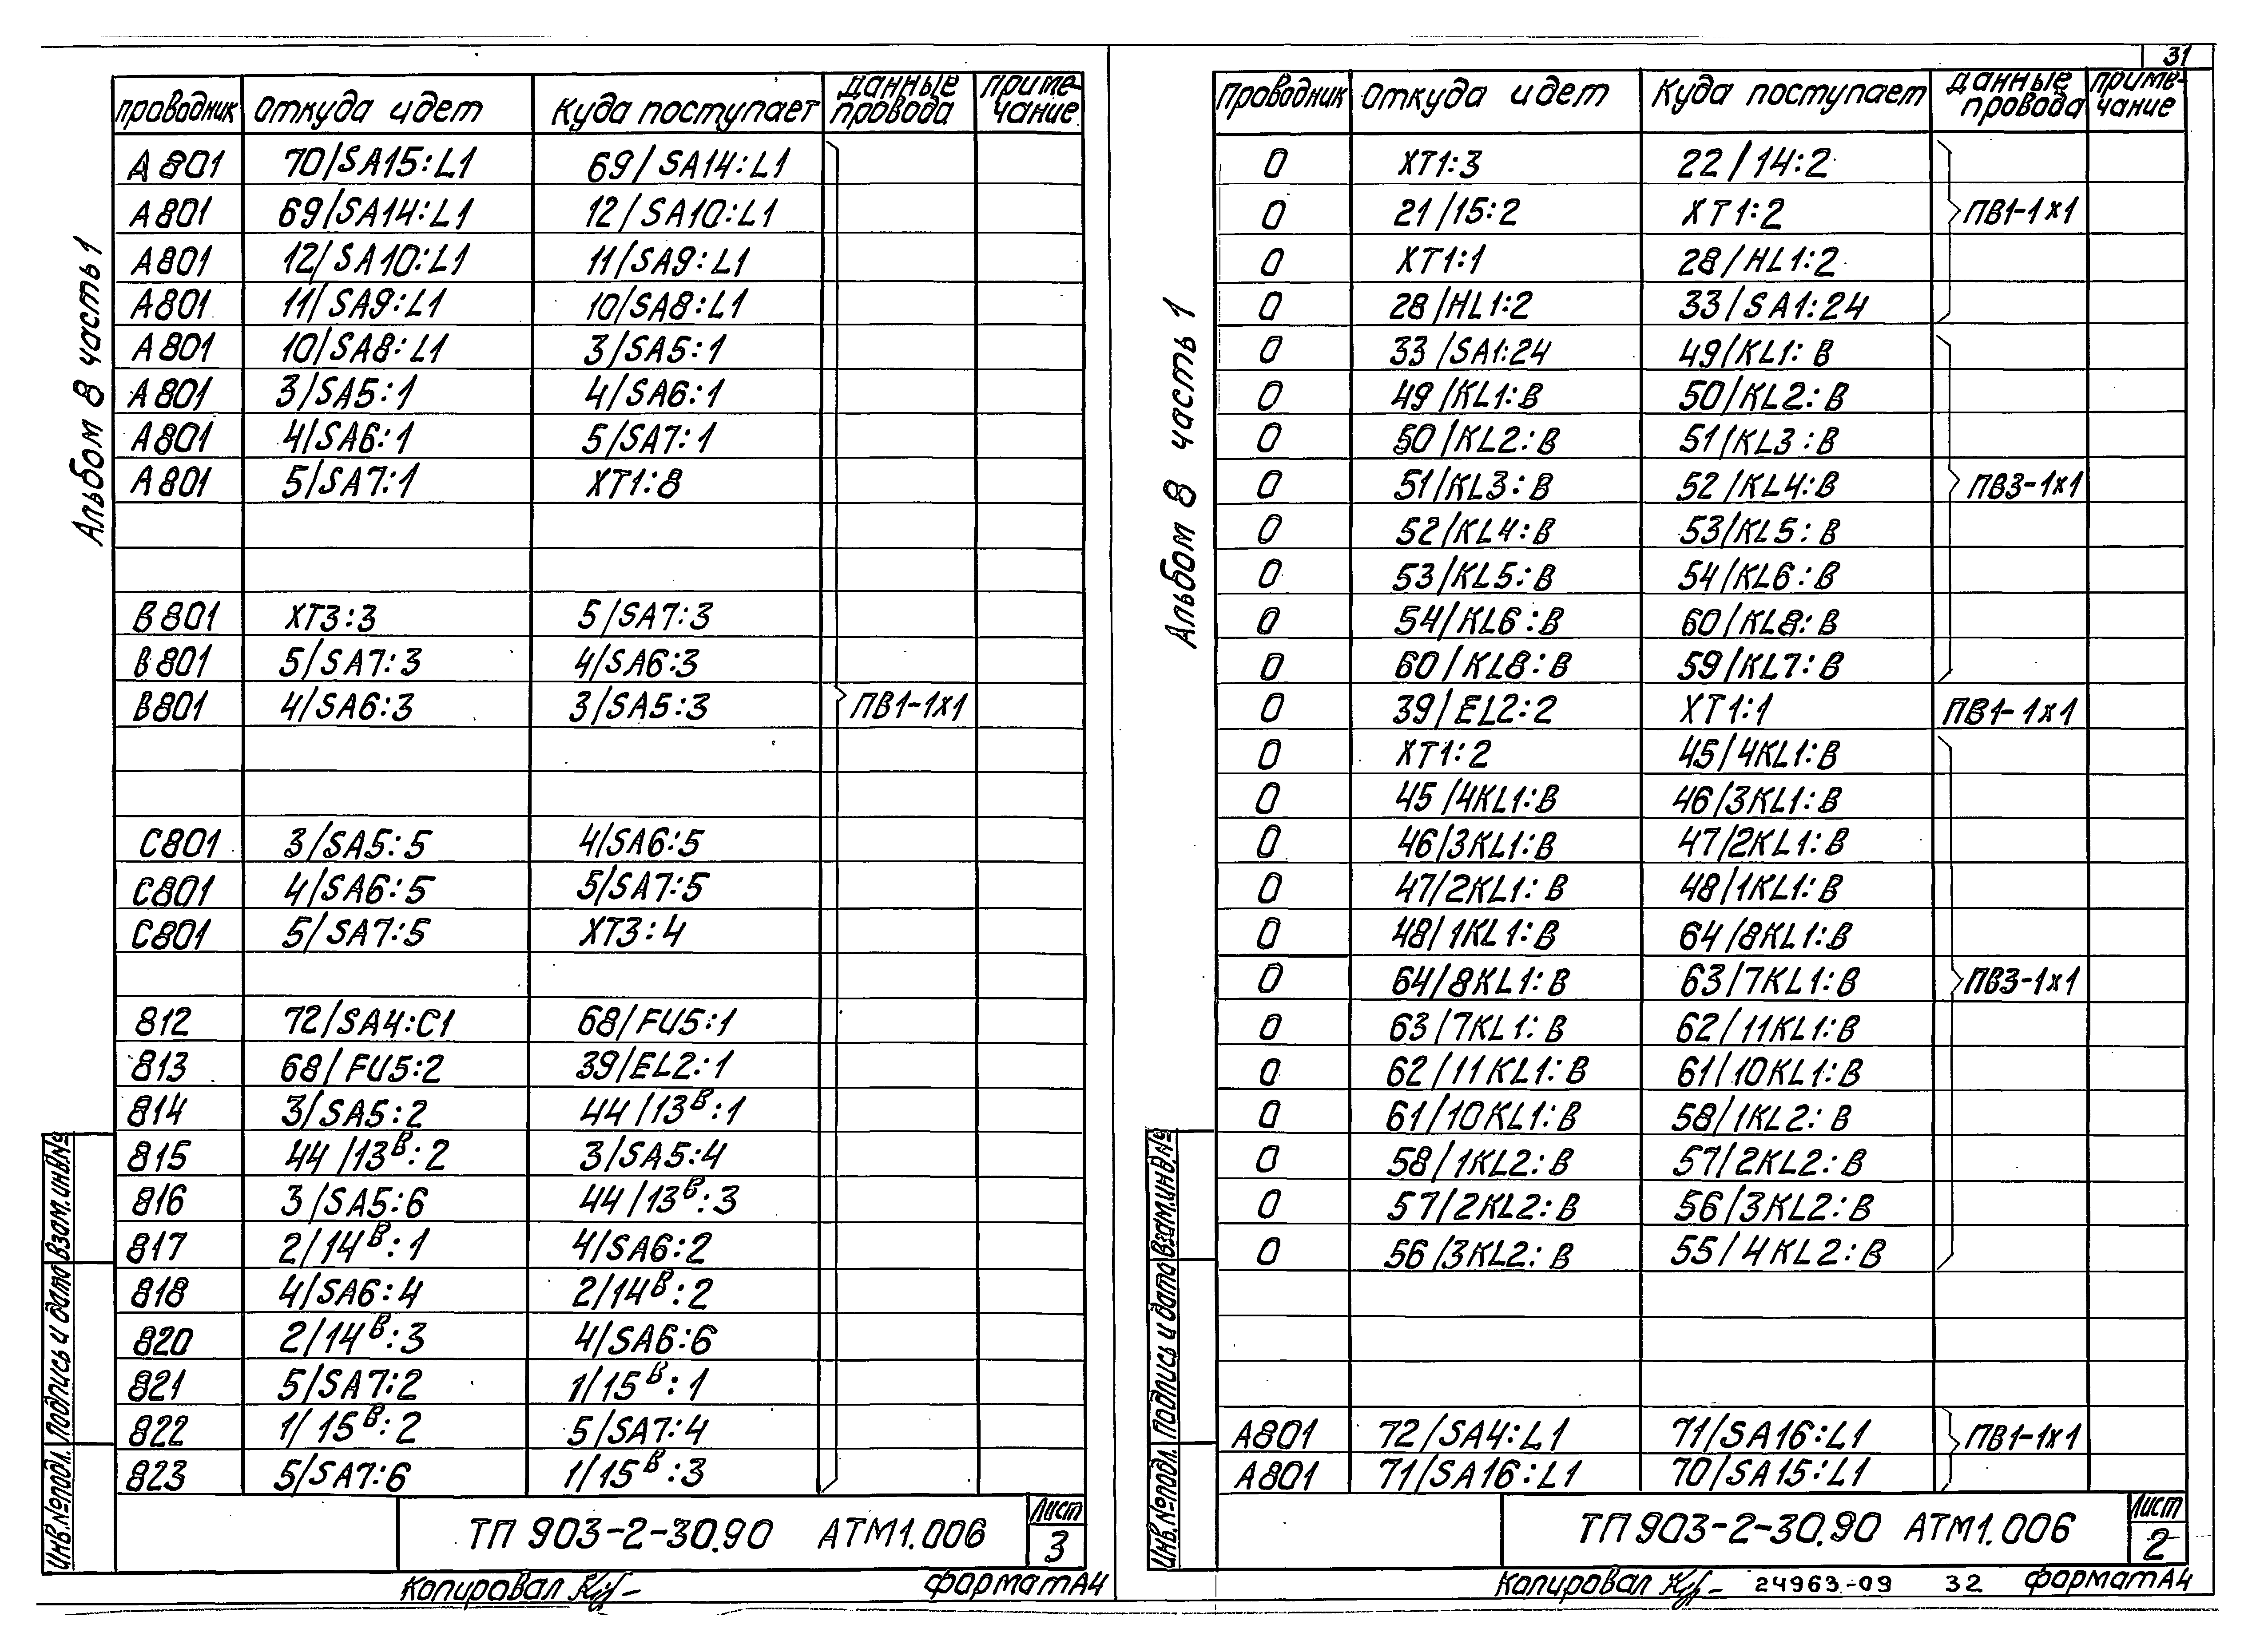 31
Альбом 8 часть 1
проводник откуда идет Куда поступает данные провода приме-чание
А801 70/SA15:L1 69/SA14:L1
А801 69/SA14:L1 12/SA10:L1
А801 12/SA10:L1 11/SA9:L1
А801 11/SA9:L1 10/SA8:L1
А801 10/SA8:L1 3/SA5:1
А801 3/SA5:1 4/SA6:1
А801 4/SA6:1 5/SA7:1
А801 5/SA7:1 XT1:8
В801 XT3:3 5/SA7:3
В801 5/SA7:3 4/SA6:3
В801 4/SA6:3 3/SA5:3 ПВ1-1х1
С801 3/SA5:5 4/SA6:5
С801 4/SA6:5 5/SA7:5
С801 5/SA7:5 XT3:4
812 72/SA4:C1 68/FU5:1
813 68/FU5:2 39/EL2:1
814 3/SA5:2 44/13ᴮ:1
815 44/13ᴮ:2 3/SA5:4
816 3/SA5:6 44/13ᴮ:3
817 2/14ᴮ:1 4/SA6:2
818 4/SA6:4 2/14ᴮ:2
820 2/14ᴮ:3 4/SA6:6
821 5/SA7:2 1/15ᴮ:1
822 1/15ᴮ:2 5/SA7:4
823 5/SA7:6 1/15ᴮ:3
Инв.№подл. Подпись и дата Взам.инв.№
ТП 903-2-30.90 АТМ1.006
Лист
3
Копировал
формат А4
Альбом 8 часть 1
Проводник откуда идет Куда поступает данные провода приме-чание
0 XT1:3 22/14:2
0 21/15:2 XT1:2 ПВ1-1х1
0 XT1:1 28/HL1:2
0 28/HL1:2 33/SA1:24
0 33/SA1:24 49/KL1:В
0 49/KL1:В 50/KL2:В
0 50/KL2:В 51/KL3:В
0 51/KL3:В 52/KL4:В ПВ3-1х1
0 52/KL4:В 53/KL5:В
0 53/KL5:В 54/KL6:В
0 54/KL6:В 60/KL8:В
0 60/KL8:В 59/KL7:В
0 39/EL2:2 XT1:1 ПВ1-1х1
0 XT1:2 45/4KL1:В
0 45/4KL1:В 46/3KL1:В
0 46/3KL1:В 47/2KL1:В
0 47/2KL1:В 48/1KL1:В
0 48/1KL1:В 64/8KL1:В
0 64/8KL1:В 63/7KL1:В ПВ3-1х1
0 63/7KL1:В 62/11KL1:В
0 62/11KL1:В 61/10KL1:В
0 61/10KL1:В 58/1KL2:В
0 58/1KL2:В 57/2KL2:В
0 57/2KL2:В 56/3KL2:В
0 56/3KL2:В 55/4KL2:В
А801 72/SA4:L1 71/SA16:L1 ПВ1-1х1
А801 71/SA16:L1 70/SA15:L1
Инв.№подл. Подпись и дата Взам.инв.№
ТП 903-2-30.90 АТМ1.006
Лист
2
Копировал
24963-09 32 формат А4